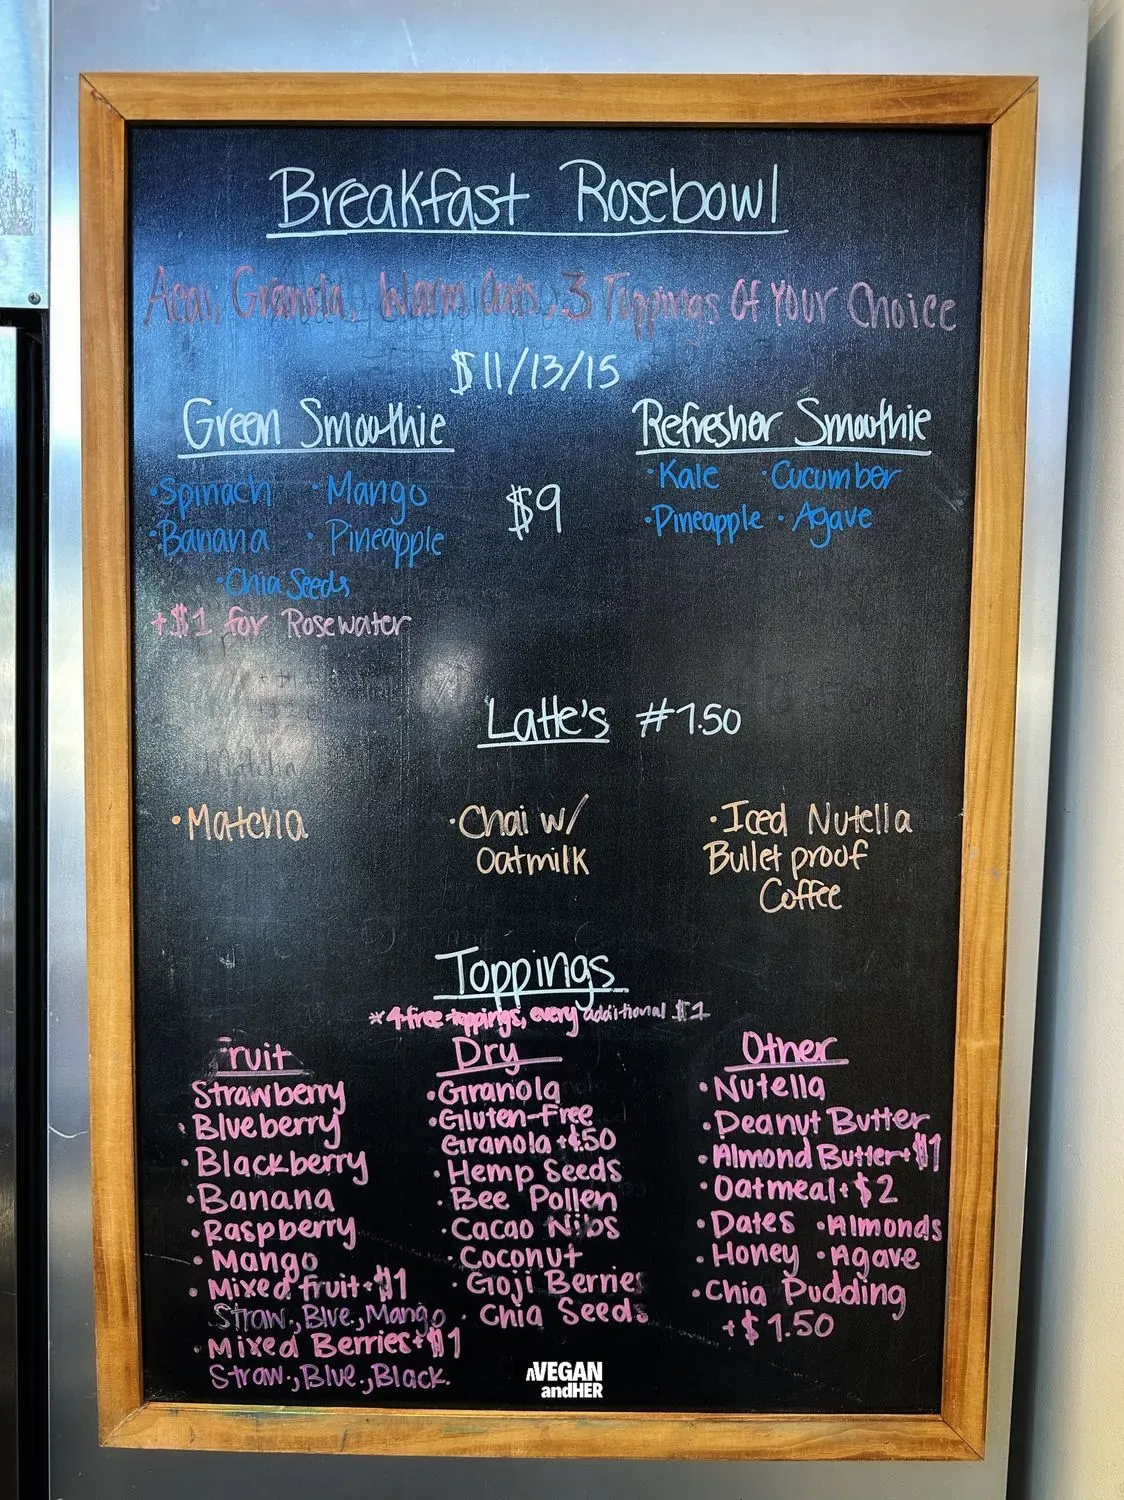 Breakfast Rosebowl
Acai, Granola, Warm Oats, 3 Toppings Of Your Choice
$11/13/15
Green Smoothie
·Spinach ·Mango
·Banana ·Pineapple
·Chia Seeds
+$1 for Rosewater
$9
Refresher Smoothie
·Kale ·Cucumber
·Pineapple ·Agave
Latte's #7.50
·Matcha
·Chai w/
Oatmilk
·Iced Nutella
Bullet proof
Coffee
Toppings
*4 free toppings, every additional $1
Fruit
Strawberry
·Blueberry
·Blackberry
·Banana
·Raspberry
·Mango
·Mixed fruit+$1
Straw., Blue., Mango
·Mixed Berries+$1
Straw., Blue., Black.
Dry
·Granola
·Gluten-Free
Granola+$.50
·Hemp Seeds
·Bee Pollen
·Cacao Nibs
·Coconut
·Goji Berries
·Chia Seeds
Other
·Nutella
·Peanut Butter
·Almond Butter+$1
·Oatmeal+$2
·Dates ·Almonds
·Honey ·Agave
·Chia Pudding
+$1.50
VEGAN
andHER